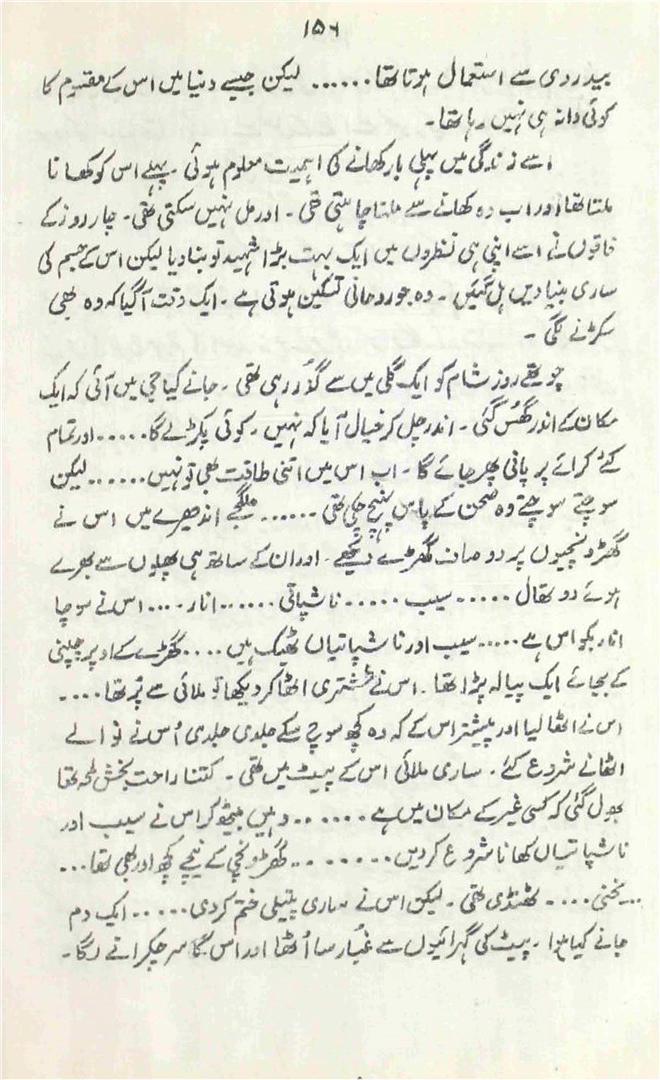 ۱۵۶
بیدردی سے استعمال ہوتا تھا...... لیکن جیسے دنیا میں اس کے مقسوم کا
کوئی دانہ ہی نہیں رہا تھا۔
اسے زندگی میں پہلی بار کھانے کی اہمیت معلوم ہوئی۔ پہلے اس کو کھانا
ملتا تھا اور اب وہ کھانے سے ملنا چاہتی تھی۔ اور مل نہیں سکتی تھی۔ چار روز کے
فاقوں نے اسے اپنی ہی نظروں میں ایک بہت بڑا شہید تو بنا دیا لیکن اس کے جسم کی
ساری بنیادیں ہل گئیں۔ وہ جو روحانی تسکین ہوتی ہے۔ ایک وقت آ گیا کہ وہ بھی
سکڑنے لگی۔
چوتھے روز شام کو ایک گلی میں سے گزر رہی تھی۔ جانے کیا جی میں آئی کہ ایک
مکان کے اندر گھس گئی۔ اندر چل کر خیال آیا کہ نہیں۔ کوئی پکڑ لے گا..... اور تمام
کئے کرائے پر پانی پھر جائے گا۔ اب اس میں اتنی طاقت بھی تو نہیں...... لیکن
سوچتے سوچتے وہ صحن کے پاس پہنچ چکی تھی...... ملگجے اندھیرے میں اس نے
گھڑونچیوں پر دو صاف گھڑے دیکھے۔ اور ان کے ساتھ ہی پھلوں سے بھرے
ہوئے دو تھال..... سیب..... ناشپاتی...... انار..... اس نے سوچا
انار بکواس ہے..... سیب اور ناشپاتیاں ٹھیک ہیں.... گھڑے کے اوپر چپنی
کے بجائے ایک پیالہ پڑا تھا۔ اس نے طشتری اٹھا کر دیکھا تو ملائی سے پُر تھا....
اس نے اٹھا لیا اور پیشتر اس کے کہ وہ کچھ سوچ سکے جلدی جلدی اُس نے نوالے
اٹھانے شروع کئے۔ ساری ملائی اس کے پیٹ میں تھی۔ کتنا راحت بخش لمحہ تھا
بھول گئی کہ کسی غیر کے مکان میں ہے...... وہیں بیٹھ کر اس نے سیب اور
ناشپاتیاں کھانا شروع کر دیں........ گھڑونچی کے نیچے کچھ اور بھی تھا...
...یخنی.... ٹھنڈی تھی۔ لیکن اس نے ساری پتیلی ختم کر دی..... ایک دم
جانے کیا ہوا۔ پیٹ کی گہرائیوں سے غبار سا اُٹھا اور اس کا سر چکرانے لگا۔